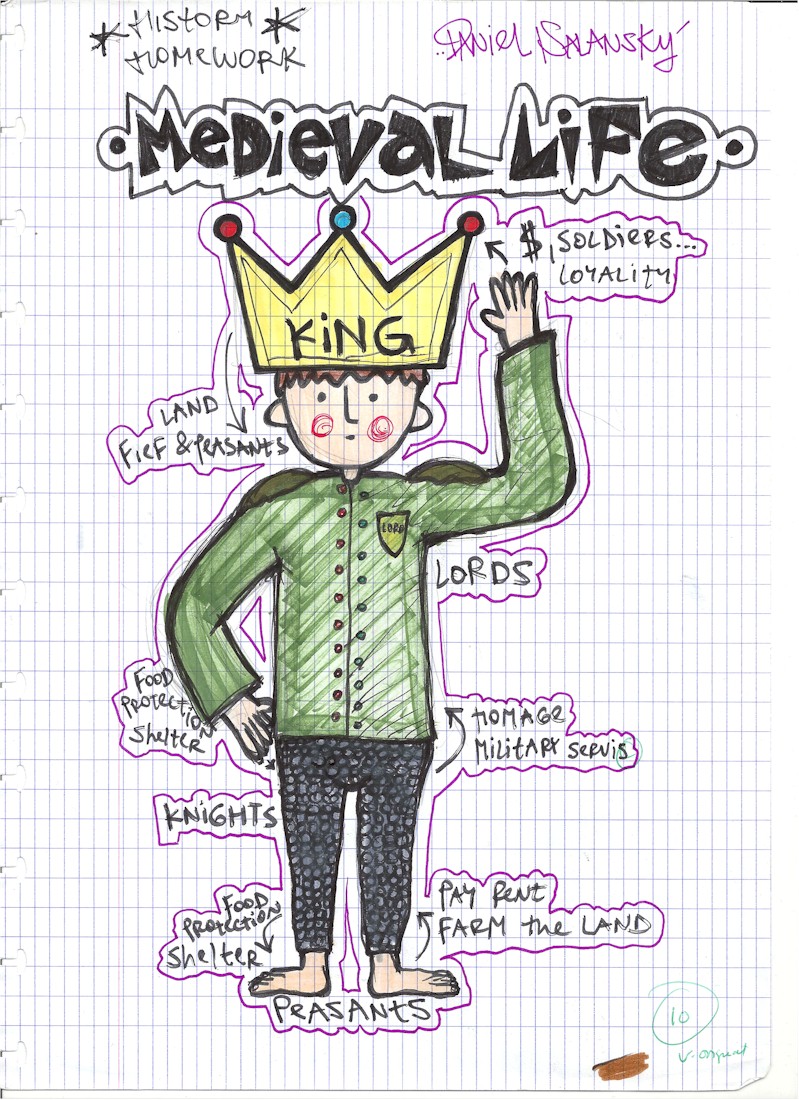 HISTORY
HOMEWORK
DANiEL SALANSKY
MEDiEVAL LiFE
$, SOLDiERS...
LOYALiTY
KiNG
LAND
FiEF & PEASANTS
LORD
LORDS
FOOD
PROTECTION
SheLteR
HOMAGE
MiLitARY SERViS
KNiGHTS
FOOD
PROTECTiON
SheLteR
PAY RENt
FARM the LAND
PEASANTS
10